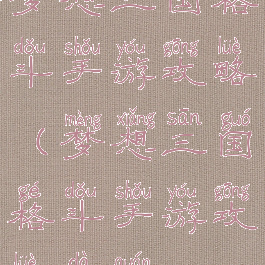 梦 想 三 国 格
dǒu shǒu yóu gōng lüè
斗 手 游 攻 略
mèng xiǎng sān guó
( 梦 想 三 国
gé dǒu shǒu yóu gōng
格 斗 手 游 攻
lüè